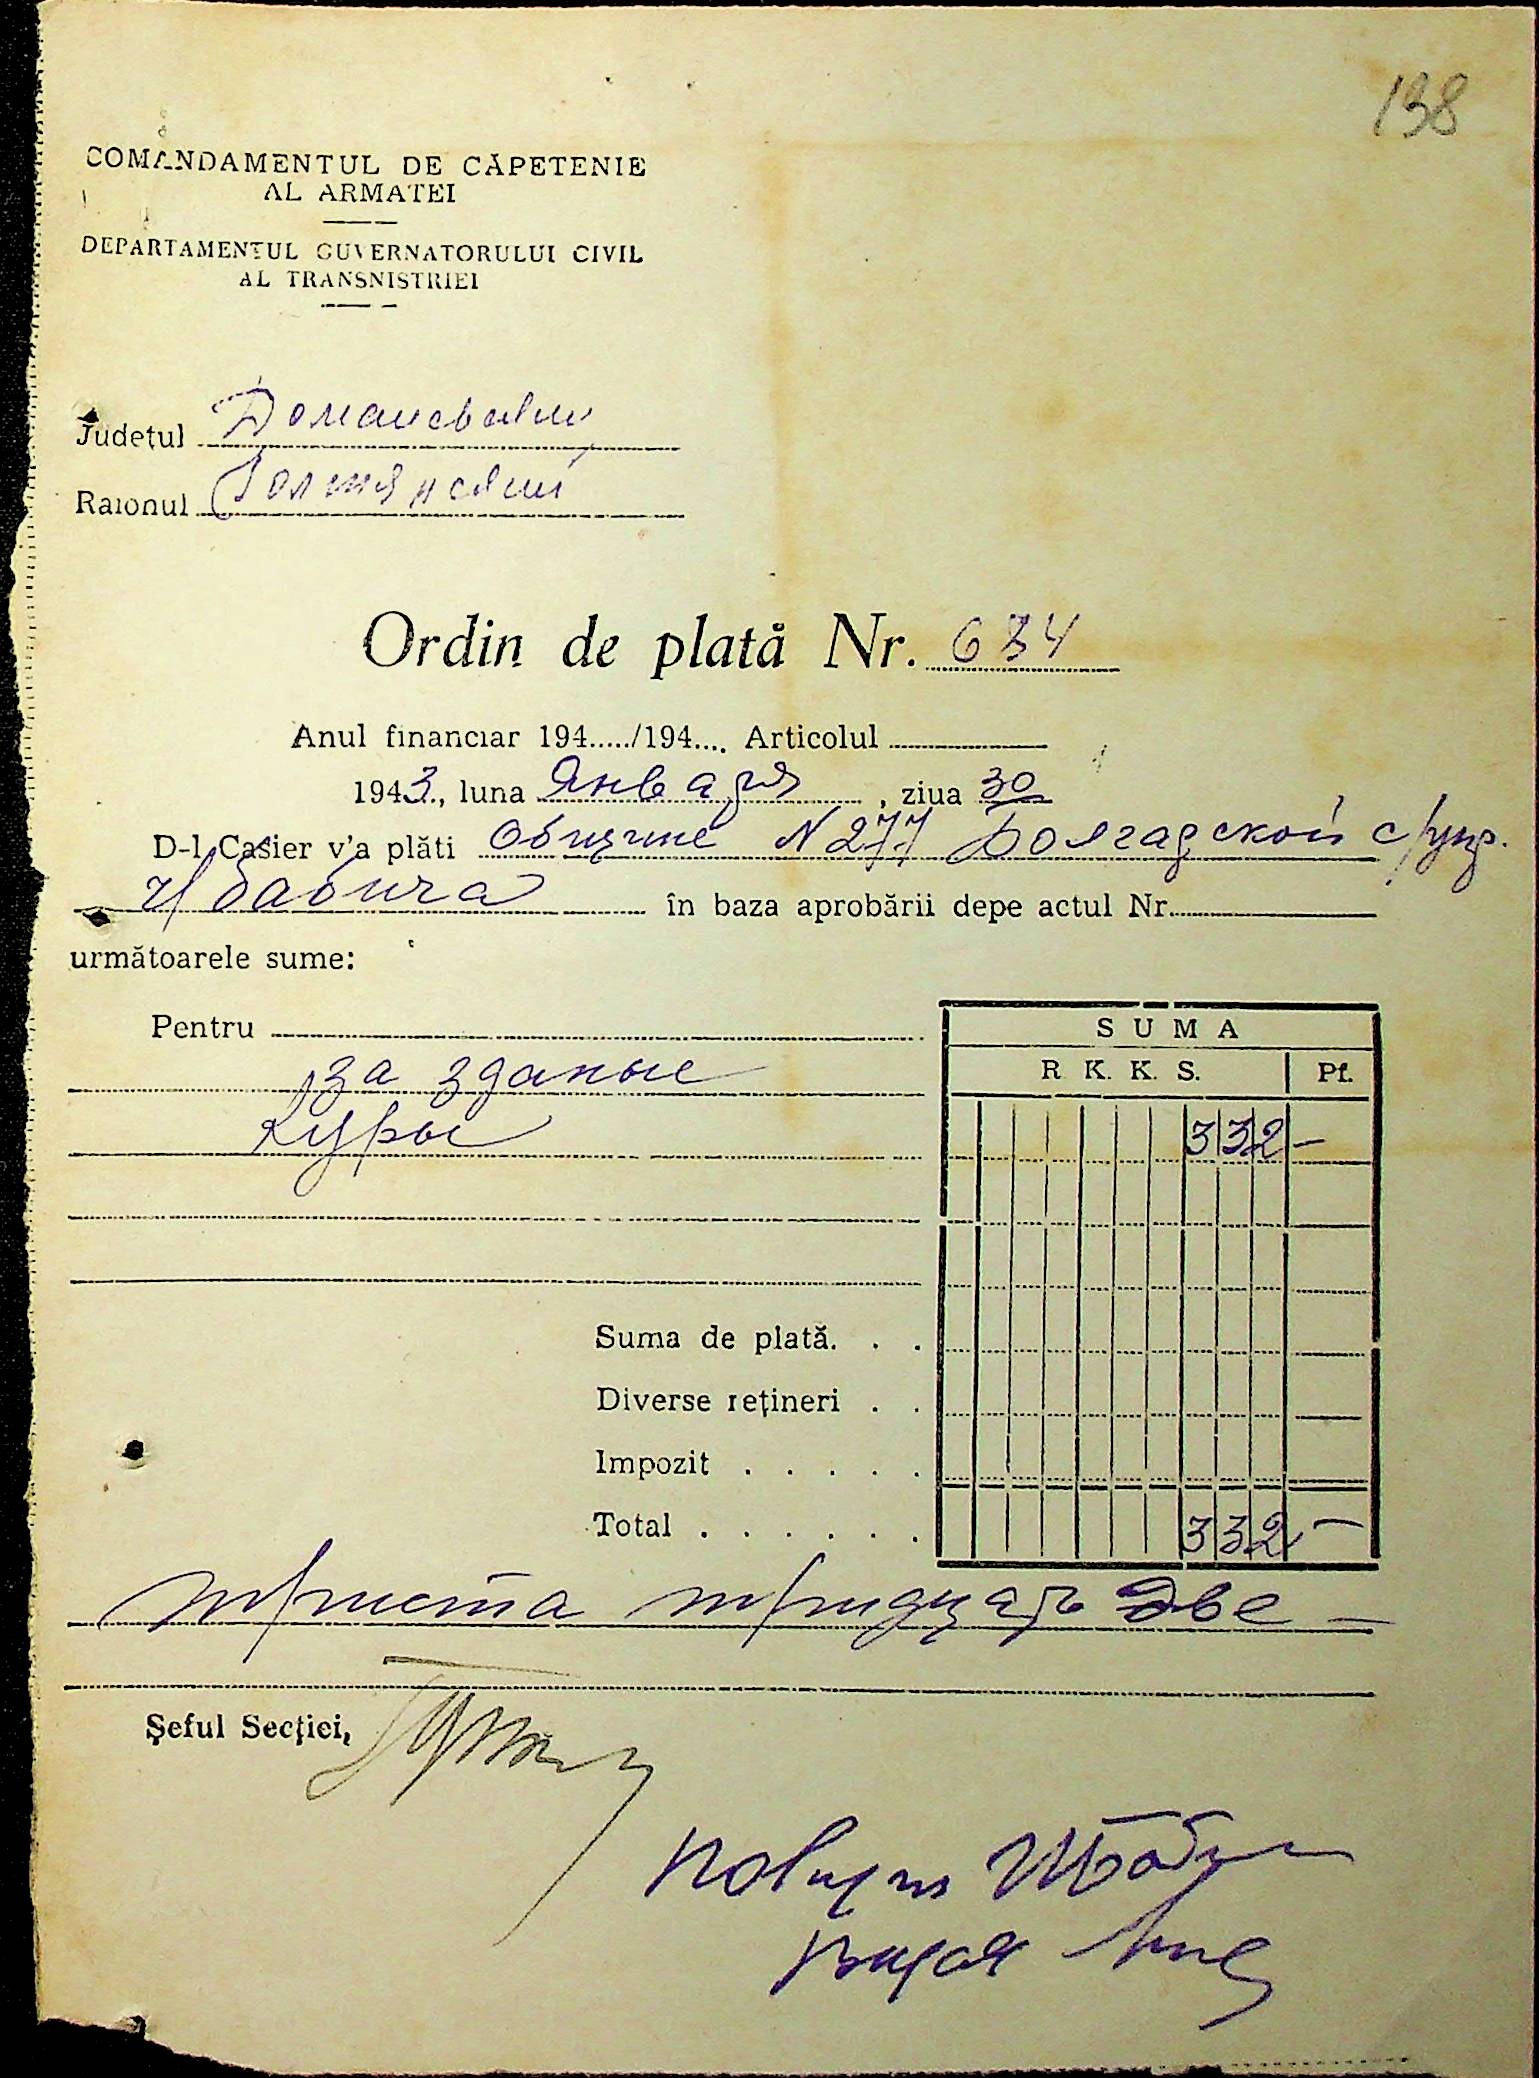 138
COMANDAMENTUL DE CĂPETENIE
AL ARMATEI
DEPARTAMENTUL GUVERNATORULUI CIVIL
AL TRANSNISTRIEI
Județul
Raionul
Ordin de plată Nr. 634
Anul financiar 194...../194.... Articolul
1943., luna Января, ziua 30
D-l Casier v'a plăti Общине N 277 с/упр.
în baza aprobării depe actul Nr.
următoarele sume:
Pentru
за зданые
Куры
SUMA
R. K. K. S. Pf.
332 —
Suma de plată. . .
Diverse rețineri . .
Impozit . . . . .
Total . . . . . . 332 —
триста тридцать две —
Șeful Secției,